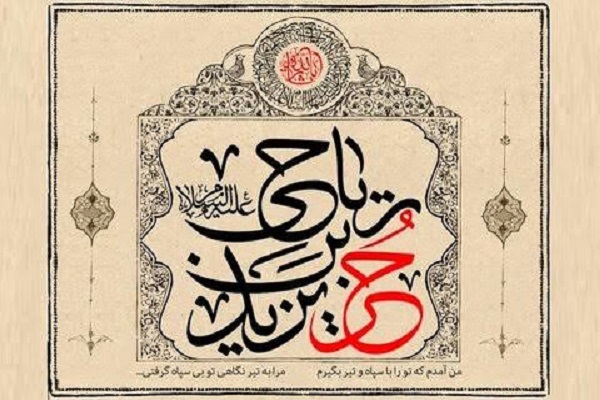 حُر بن یزید ریاحی علیه السلام
من آمدم که تو را با سپاه و تیر بگیرم مرا به تیر نگاهی تو بی سپاه گرفتی...